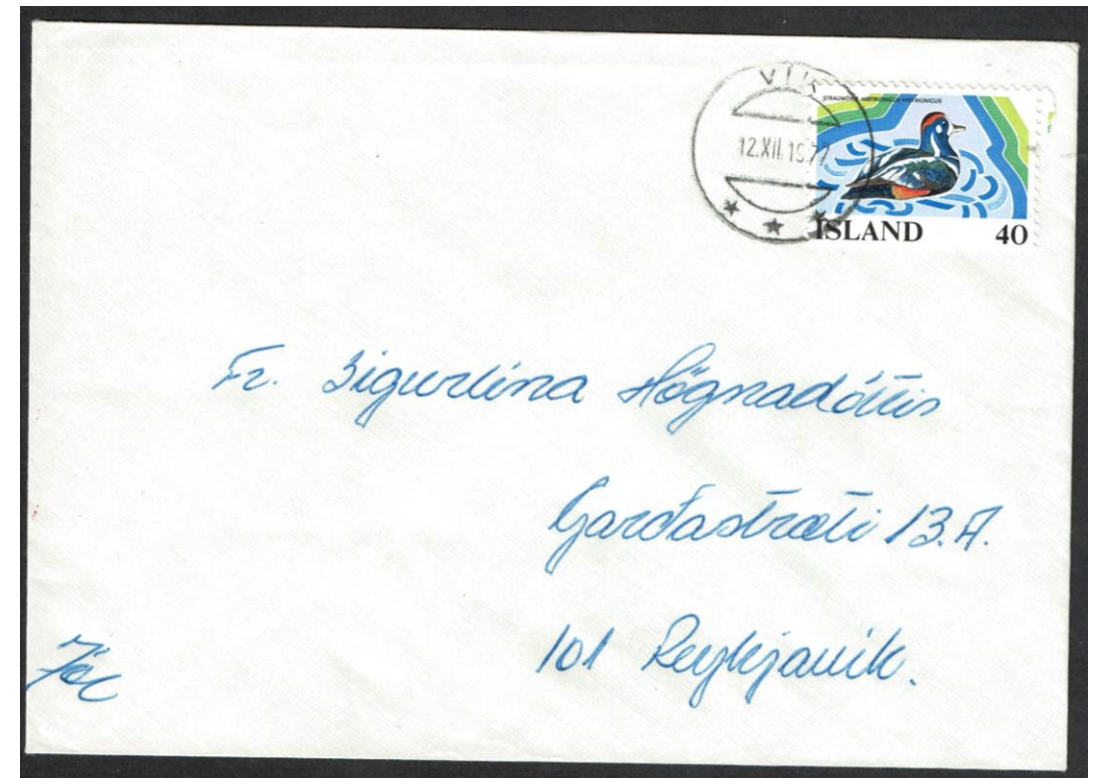 VÍK
12.XII.1977
STRAUMÖND HISTRIONICUS HISTRIONICUS
ÍSLAND 40
Fr. Sigurlína Högnadóttir
Garðastræti 13.A.
101 Reykjavík.
Jól